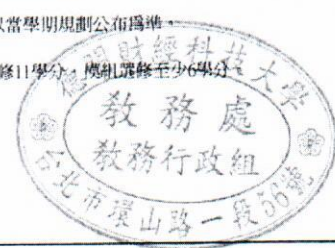 以當學期規劃公布為準。
修11學分，模組選修至少6學分。
德明財經科技大學
教務處
教務行政組
台北市環山路一段56號